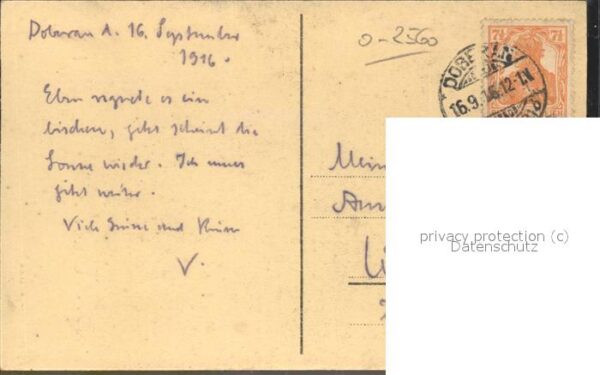 Doberan d. 16. September
1916.
Eben regnete es ein
bischen, jetzt scheint die
Sonne wieder. Ich muss
jetzt weiter.
Viele Grüsse und Küsse
V.
0-2560
7½ 7½
DOBERAN
16.9.16.12-1N.
Mein
privacy protection (c)
Datenschutz